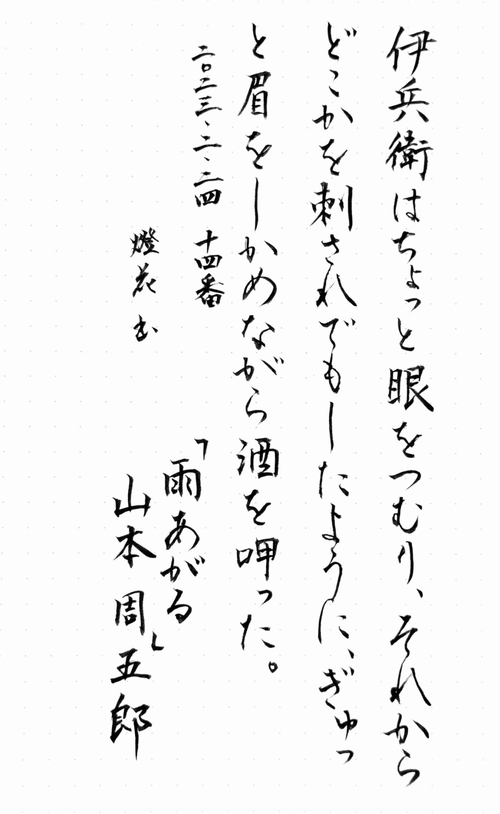 伊兵衛はちょっと眼をつむり、それから
どこかを刺されでもしたように、ぎゅっ
と眉をしかめながら酒を呷った。
二〇二三・二・二四 十四番
燈花
「雨あがる」
山本周五郎